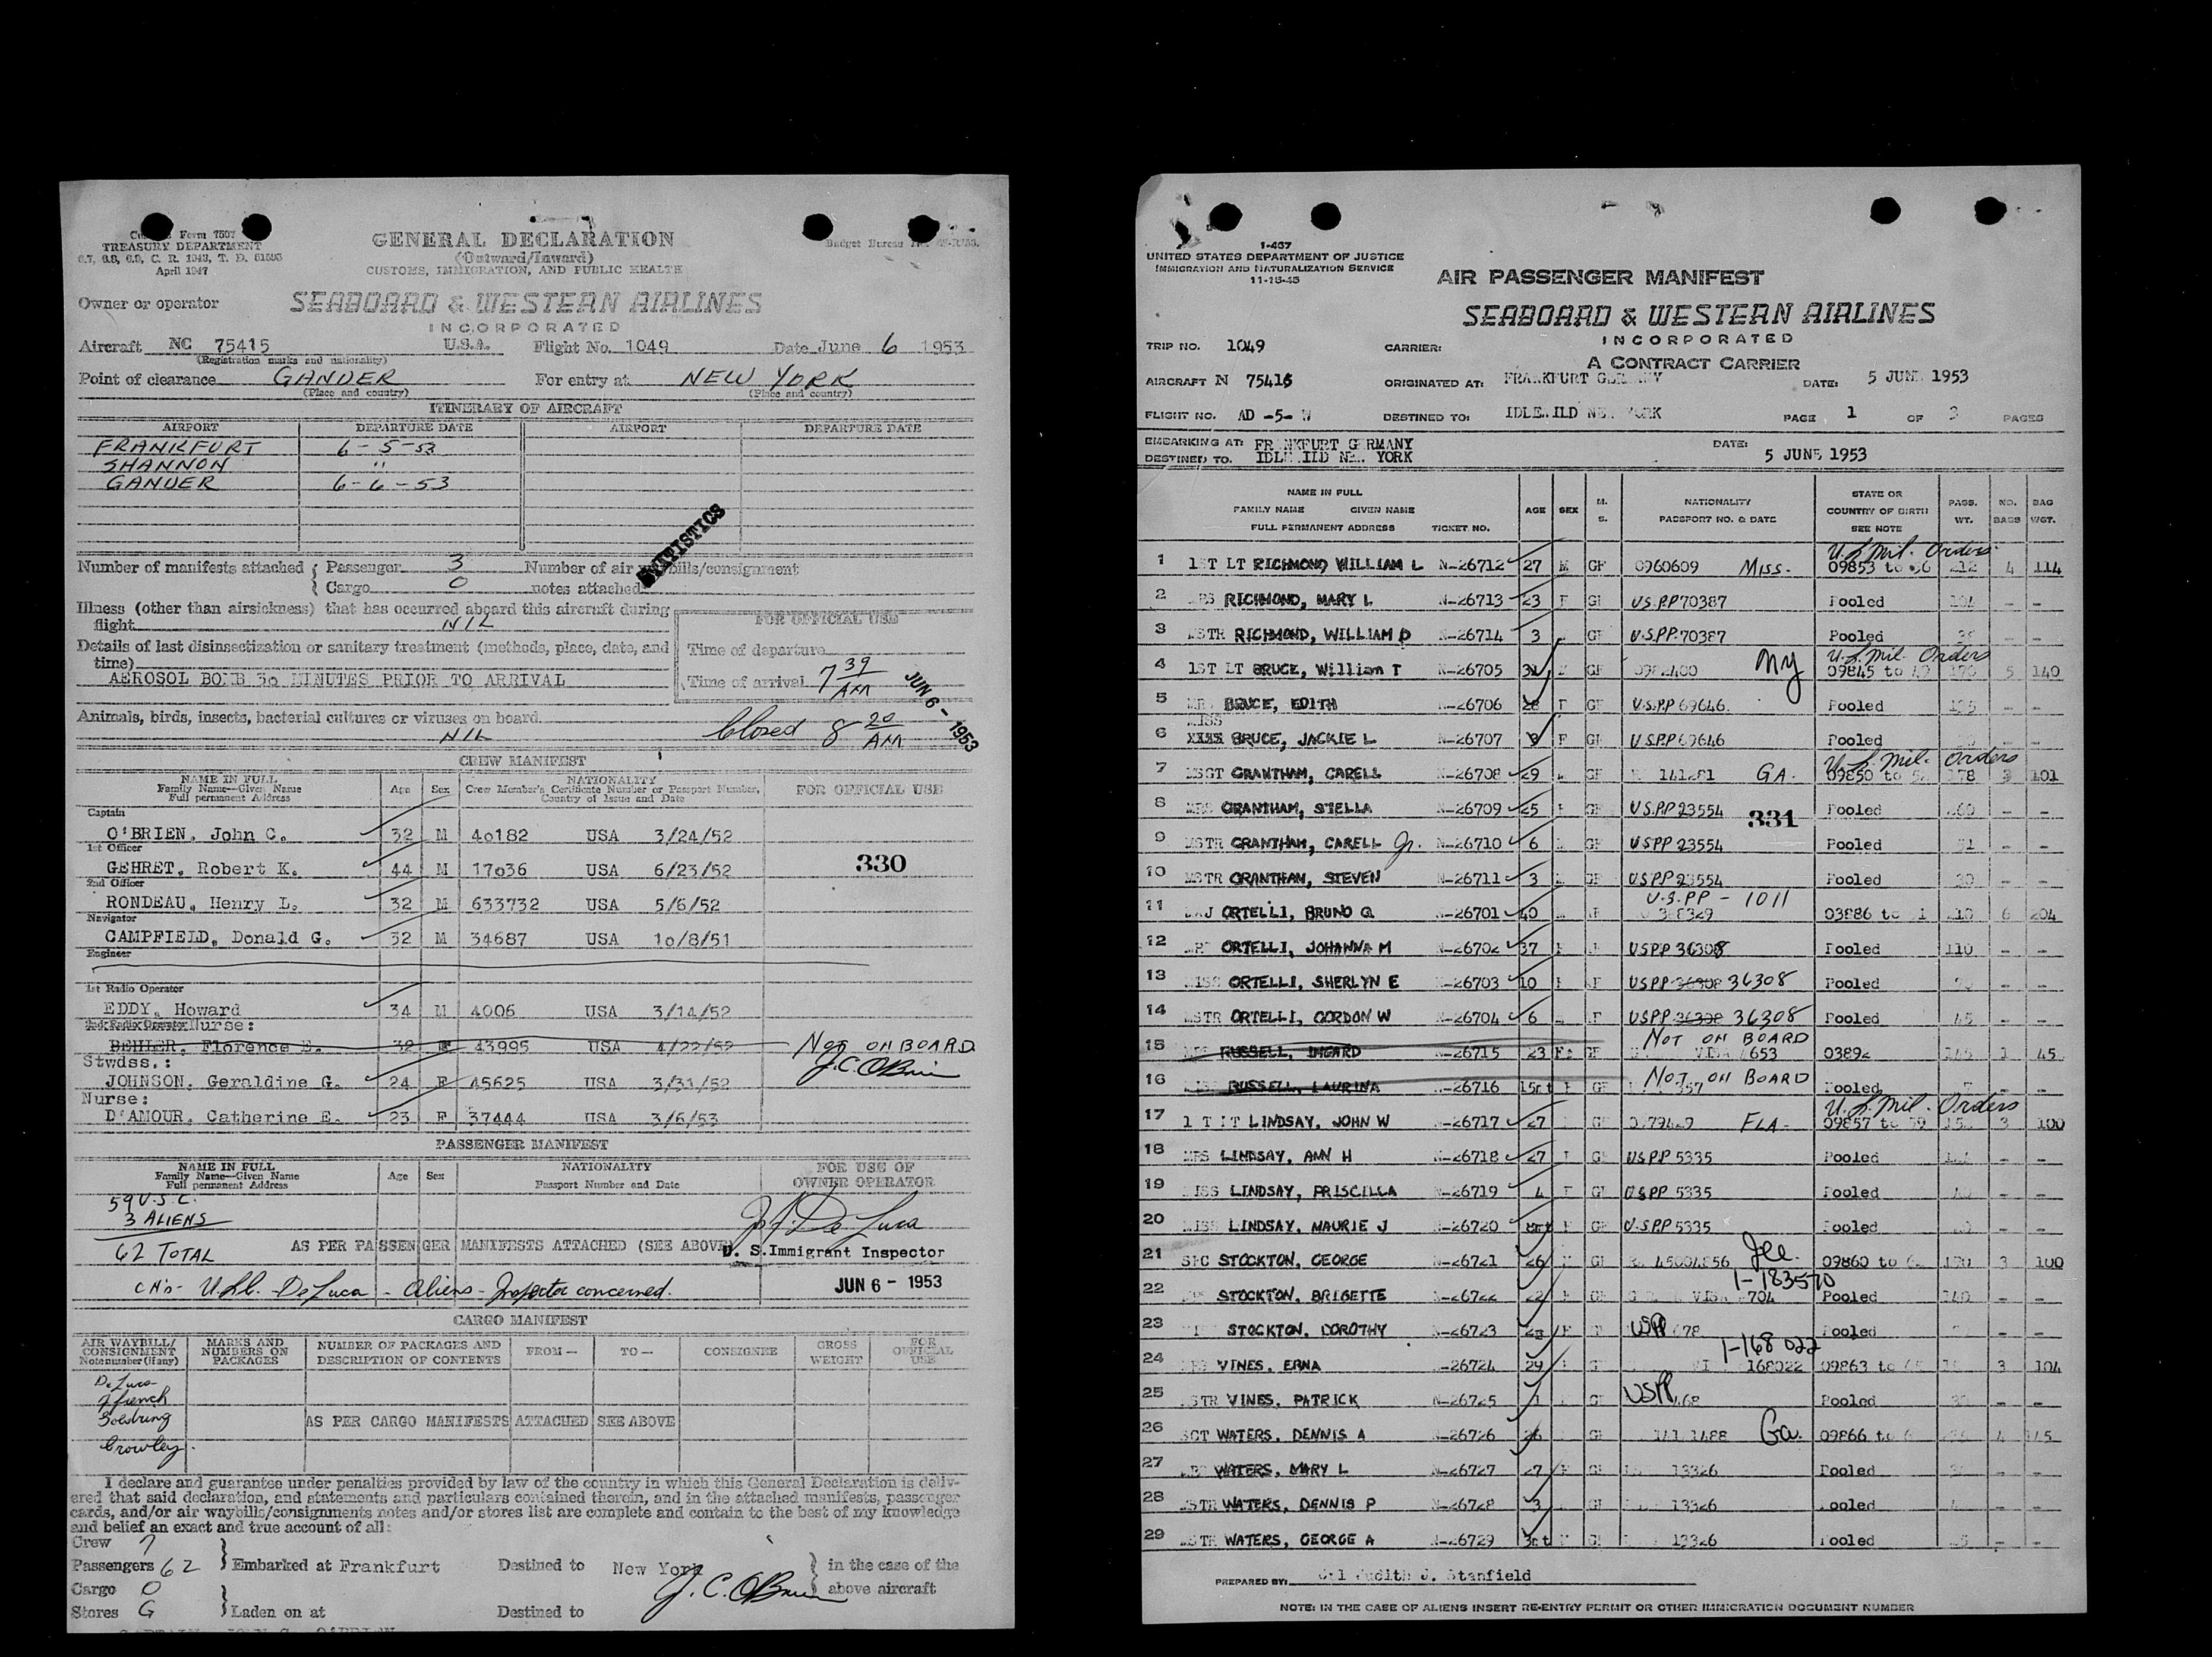 Form 7507
TREASURY DEPARTMENT
6.7, 6.8, 6.9, C. R. 1943, T. D. 51595
April 1947
GENERAL DECLARATION
(Outward/Inward)
CUSTOMS, IMMIGRATION, AND PUBLIC HEALTH
Budget Bureau
Owner or operator
SEABOARD & WESTERN AIRLINES
INCORPORATED
Aircraft NC 75415 U.S.A. Flight No. 1049 Date June 6 1953
(Registration marks and nationality)
Point of clearance GANDER For entry at NEW YORK
(Place and country) (Place and country)
ITINERARY OF AIRCRAFT
AIRPORT DEPARTURE DATE AIRPORT DEPARTURE DATE
FRANKFURT 6-5-53
SHANNON "
GANDER 6-6-53
STATISTICS
Number of manifests attached { Passenger 3 Number of air waybills/consignment
Cargo 0 notes attached
Illness (other than airsickness) that has occurred aboard this aircraft during
flight NIL
FOR OFFICIAL USE
Details of last disinsectization or sanitary treatment (methods, place, date, and
time)
Time of departure
AEROSOL BOMB 30 MINUTES PRIOR TO ARRIVAL
Time of arrival 7 39 AM
JUN 6 - 1953
Animals, birds, insects, bacterial cultures or viruses on board
NIL
Closed 8 20 AM
CREW MANIFEST
NAME IN FULL
Family Name—Given Name
Full permanent Address
Age Sex
NATIONALITY
Crew Member's Certificate Number or Passport Number,
Country of Issue and Date
FOR OFFICIAL USE
Captain
O'BRIEN, John C. 32 M 40182 USA 3/24/52
1st Officer
GEHRET, Robert K. 44 M 17036 USA 6/23/52
330
2nd Officer
RONDEAU, Henry L. 32 M 633732 USA 5/6/52
Navigator
CAMPFIELD, Donald G. 32 M 34687 USA 10/8/51
Engineer
1st Radio Operator
EDDY, Howard 34 M 4006 USA 3/14/52
2nd Radio Operator Nurse:
BEHLER, Florence E. 32 F 43995 USA 4/22/52 NOT ON BOARD
J.C. O'Brien
Stwdss.:
JOHNSON, Geraldine G. 24 F 45625 USA 3/31/52
Nurse:
D'AMOUR, Catherine E. 23 F 37444 USA 3/6/53
PASSENGER MANIFEST
NAME IN FULL
Family Name—Given Name
Full permanent Address
Age Sex
NATIONALITY
Passport Number and Date
FOR USE OF
OWNER OPERATOR
59 U.S.C.
3 ALIENS
62 TOTAL
AS PER PASSENGER MANIFESTS ATTACHED (SEE ABOVE)
J. De Luca
U. S. Immigrant Inspector
JUN 6 - 1953
De Luca - Aliens - Inspector concerned.
CARGO MANIFEST
AIR WAYBILL/
CONSIGNMENT
Note number (if any)
MARKS AND
NUMBERS ON
PACKAGES
NUMBER OF PACKAGES AND
DESCRIPTION OF CONTENTS
FROM—
TO—
CONSIGNEE
GROSS
WEIGHT
FOR
OFFICIAL
USE
De Luca
French
Goldring
Crowley
AS PER CARGO MANIFESTS ATTACHED SEE ABOVE
I declare and guarantee under penalties provided by law of the country in which this General Declaration is deliv-
ered that said declaration, and statements and particulars contained therein, and in the attached manifests, passenger
cards, and/or air waybills/consignments notes and/or stores list are complete and contain to the best of my knowledge
and belief an exact and true account of all:
Crew 7
Passengers 62 Embarked at Frankfurt Destined to New York in the case of the
above aircraft
Cargo 0
J. C. O'Brien
Stores G Laden on at Destined to
I-467
UNITED STATES DEPARTMENT OF JUSTICE
IMMIGRATION AND NATURALIZATION SERVICE
11-15-45
AIR PASSENGER MANIFEST
SEABOARD & WESTERN AIRLINES
INCORPORATED
A CONTRACT CARRIER
TRIP NO. 1049 CARRIER:
AIRCRAFT N 75415 ORIGINATED AT: FRANKFURT GERMANY DATE: 5 JUNE 1953
FLIGHT NO. AD -5- W DESTINED TO: IDLEWILD NEW YORK PAGE 1 OF 3 PAGES
EMBARKING AT: FRANKFURT GERMANY DATE: 5 JUNE 1953
DESTINED TO. IDLEWILD NEW YORK
NAME IN FULL
FAMILY NAME GIVEN NAME
FULL PERMANENT ADDRESS TICKET NO.
AGE SEX M. S.
NATIONALITY
PASSPORT NO. & DATE
STATE OR
COUNTRY OF BIRTH
SEE NOTE
PASS. WT.
NO. BAGS
BAG WGT.
U.S. Mil. Orders
1 1ST LT RICHMOND WILLIAM L N-26712 27 M GF 0960609 MISS. 09853 to 56 212 4 114
2 MRS RICHMOND, MARY L N-26713 23 F GF U.S.P.P 70387 Pooled - -
3 MSTR RICHMOND, WILLIAM D N-26714 3 GF U.S.P.P. 70387 Pooled - -
U.S. Mil. Orders
4 1ST LT BRUCE, William T N-26705 GF NY 09845 to 5 140
5 BRUCE, EDITH N-26706 F GF U.S.P.P 69646 Pooled - -
MISS
6 BRUCE, JACKIE L N-26707 8 F GF U.S.P.P 69646 Pooled - -
U.S. Mil. Orders
7 MSGT GRANTHAM, CARELL N-26708 29 GF 141281 GA. 09850 to 178 3 101
8 MRS GRANTHAM, STELLA N-26709 25 F GF U.S.P.P 23554 Pooled - -
331
9 MSTR GRANTHAM, CARELL Jr. N-26710 6 GF USPP 23554 Pooled - -
10 MSTR GRANTHAM, STEVEN N-26711 3 GF USPP 23554 Pooled - -
U.S.PP - 1011
11 MAJ ORTELLI, BRUNO Q N-26701 40 03886 to 6 204
12 ORTELLI, JOHANNA M N-26702 37 USPP 36308 Pooled 110 - -
13 MISS ORTELLI, SHERLYN E N-26703 10 USPP 36308 36308 Pooled - -
14 MSTR ORTELLI, GORDON W N-26704 6 USPP 36308 36308 Pooled 45 - -
NOT ON BOARD
15 RUSSELL, IMGARD N-26715 23 F GF VISA 03892 1 45
NOT ON BOARD
16 RUSSELL, LAURINA N-26716 F GF Pooled - -
U.S. Mil. Orders
17 LINDSAY, JOHN W N-26717 27 GF FLA. 09857 to 59 3 100
18 MRS LINDSAY, ANN H N-26718 27 F GF USPP 5335 Pooled - -
19 MISS LINDSAY, PRISCILLA N-26719 4 F GF USPP 5335 Pooled - -
20 MISS LINDSAY, MAURIE J N-26720 F GF U.S.PP 5335 Pooled - -
21 SFC STOCKTON, GEORGE N-26721 26 GF 09860 to 3 100
1-183570
22 STOCKTON, BRIGETTE N-26722 22 GF VISA 704 Pooled - -
23 STOCKTON, DOROTHY N-26723 USPP Pooled - -
1-168022
24 VINES, ERNA N-26724 29 168022 09863 to 3 104
25 MSTR VINES, PATRICK N-26725 1 USPP Pooled - -
26 SGT WATERS, DENNIS A N-26726 26 GF Ga. 09866 to 4
27 WATERS, MARY L N-26727 27 F GF 13326 Pooled - -
28 MSTR WATERS, DENNIS P N-26728 3 GF 13326 Pooled - -
29 MSTR WATERS, GEORGE A N-26729 GF 13326 Pooled - -
PREPARED BY: Judith J. Stanfield
NOTE: IN THE CASE OF ALIENS INSERT RE-ENTRY PERMIT OR OTHER IMMIGRATION DOCUMENT NUMBER